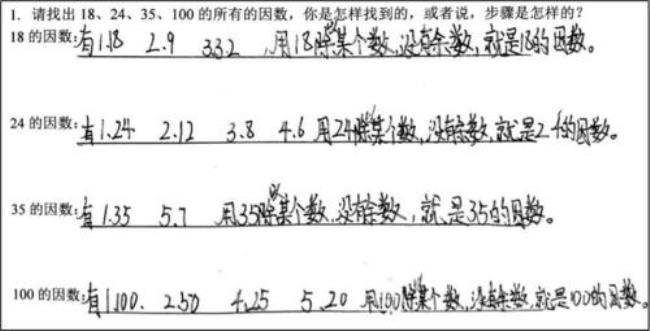 1. 请找出 18、24、35、100 的所有的因数，你是怎样找到的，或者说，步骤是怎样的？
18 的因数:有1.18 2.9 332 ,用18除以某个数,没有余数,就是18的因数。
24 的因数:有1.24 2.12 3.8 4.6 用24除以某个数,没有余数,就是24的因数。
35 的因数:有1.35 5.7 用35除以某个数,没有余数,就是35的因数。
100 的因数:有1.100. 2.50 4.25 5.20 用100除以某个数,没有余数,就是100的因数。